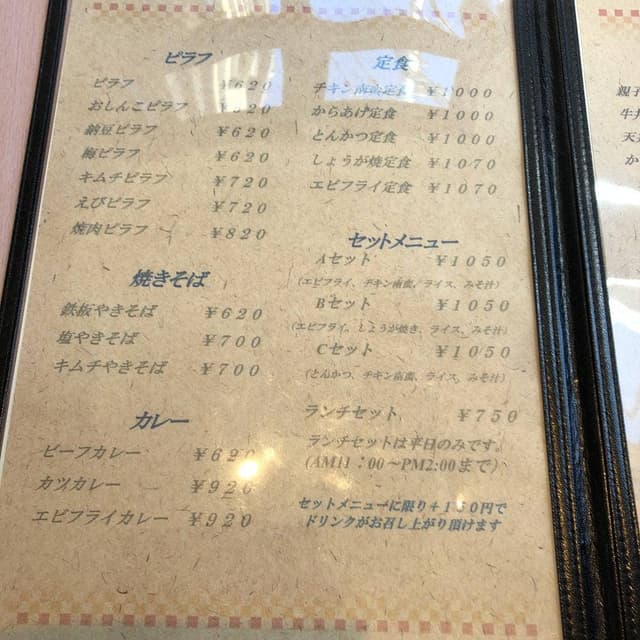 ピラフ
ピラフ ¥620
おしんこピラフ 20
納豆ピラフ ¥620
梅ピラフ ¥620
キムチピラフ ¥720
えびピラフ ¥720
焼肉ピラフ ¥820
焼きそば
鉄板やきそば ¥620
塩やきそば ¥700
キムチやきそば ¥700
カレー
ビーフカレー ¥620
カツカレー ¥920
エビフライカレー ¥920
定食
チキン南蛮定食 ¥1000
からあげ定食 ¥1000
とんかつ定食 ¥1000
しょうが焼定食 ¥1070
エビフライ定食 ¥1070
セットメニュー
Aセット ¥1050
(エビフライ、チキン南蛮/ライス、みそ汁)
Bセット ¥1050
(エビフライ、しょうが焼き、ライス、みそ汁)
Cセット ¥1050
(とんかつ、チキン南蛮、ライス、みそ汁)
ランチセット ¥750
ランチセットは平日のみです。
(AM11:00~PM2:00まで)
セットメニューに限り+150円で
ドリンクがお召し上がり頂けます
親子
牛丼
天
か